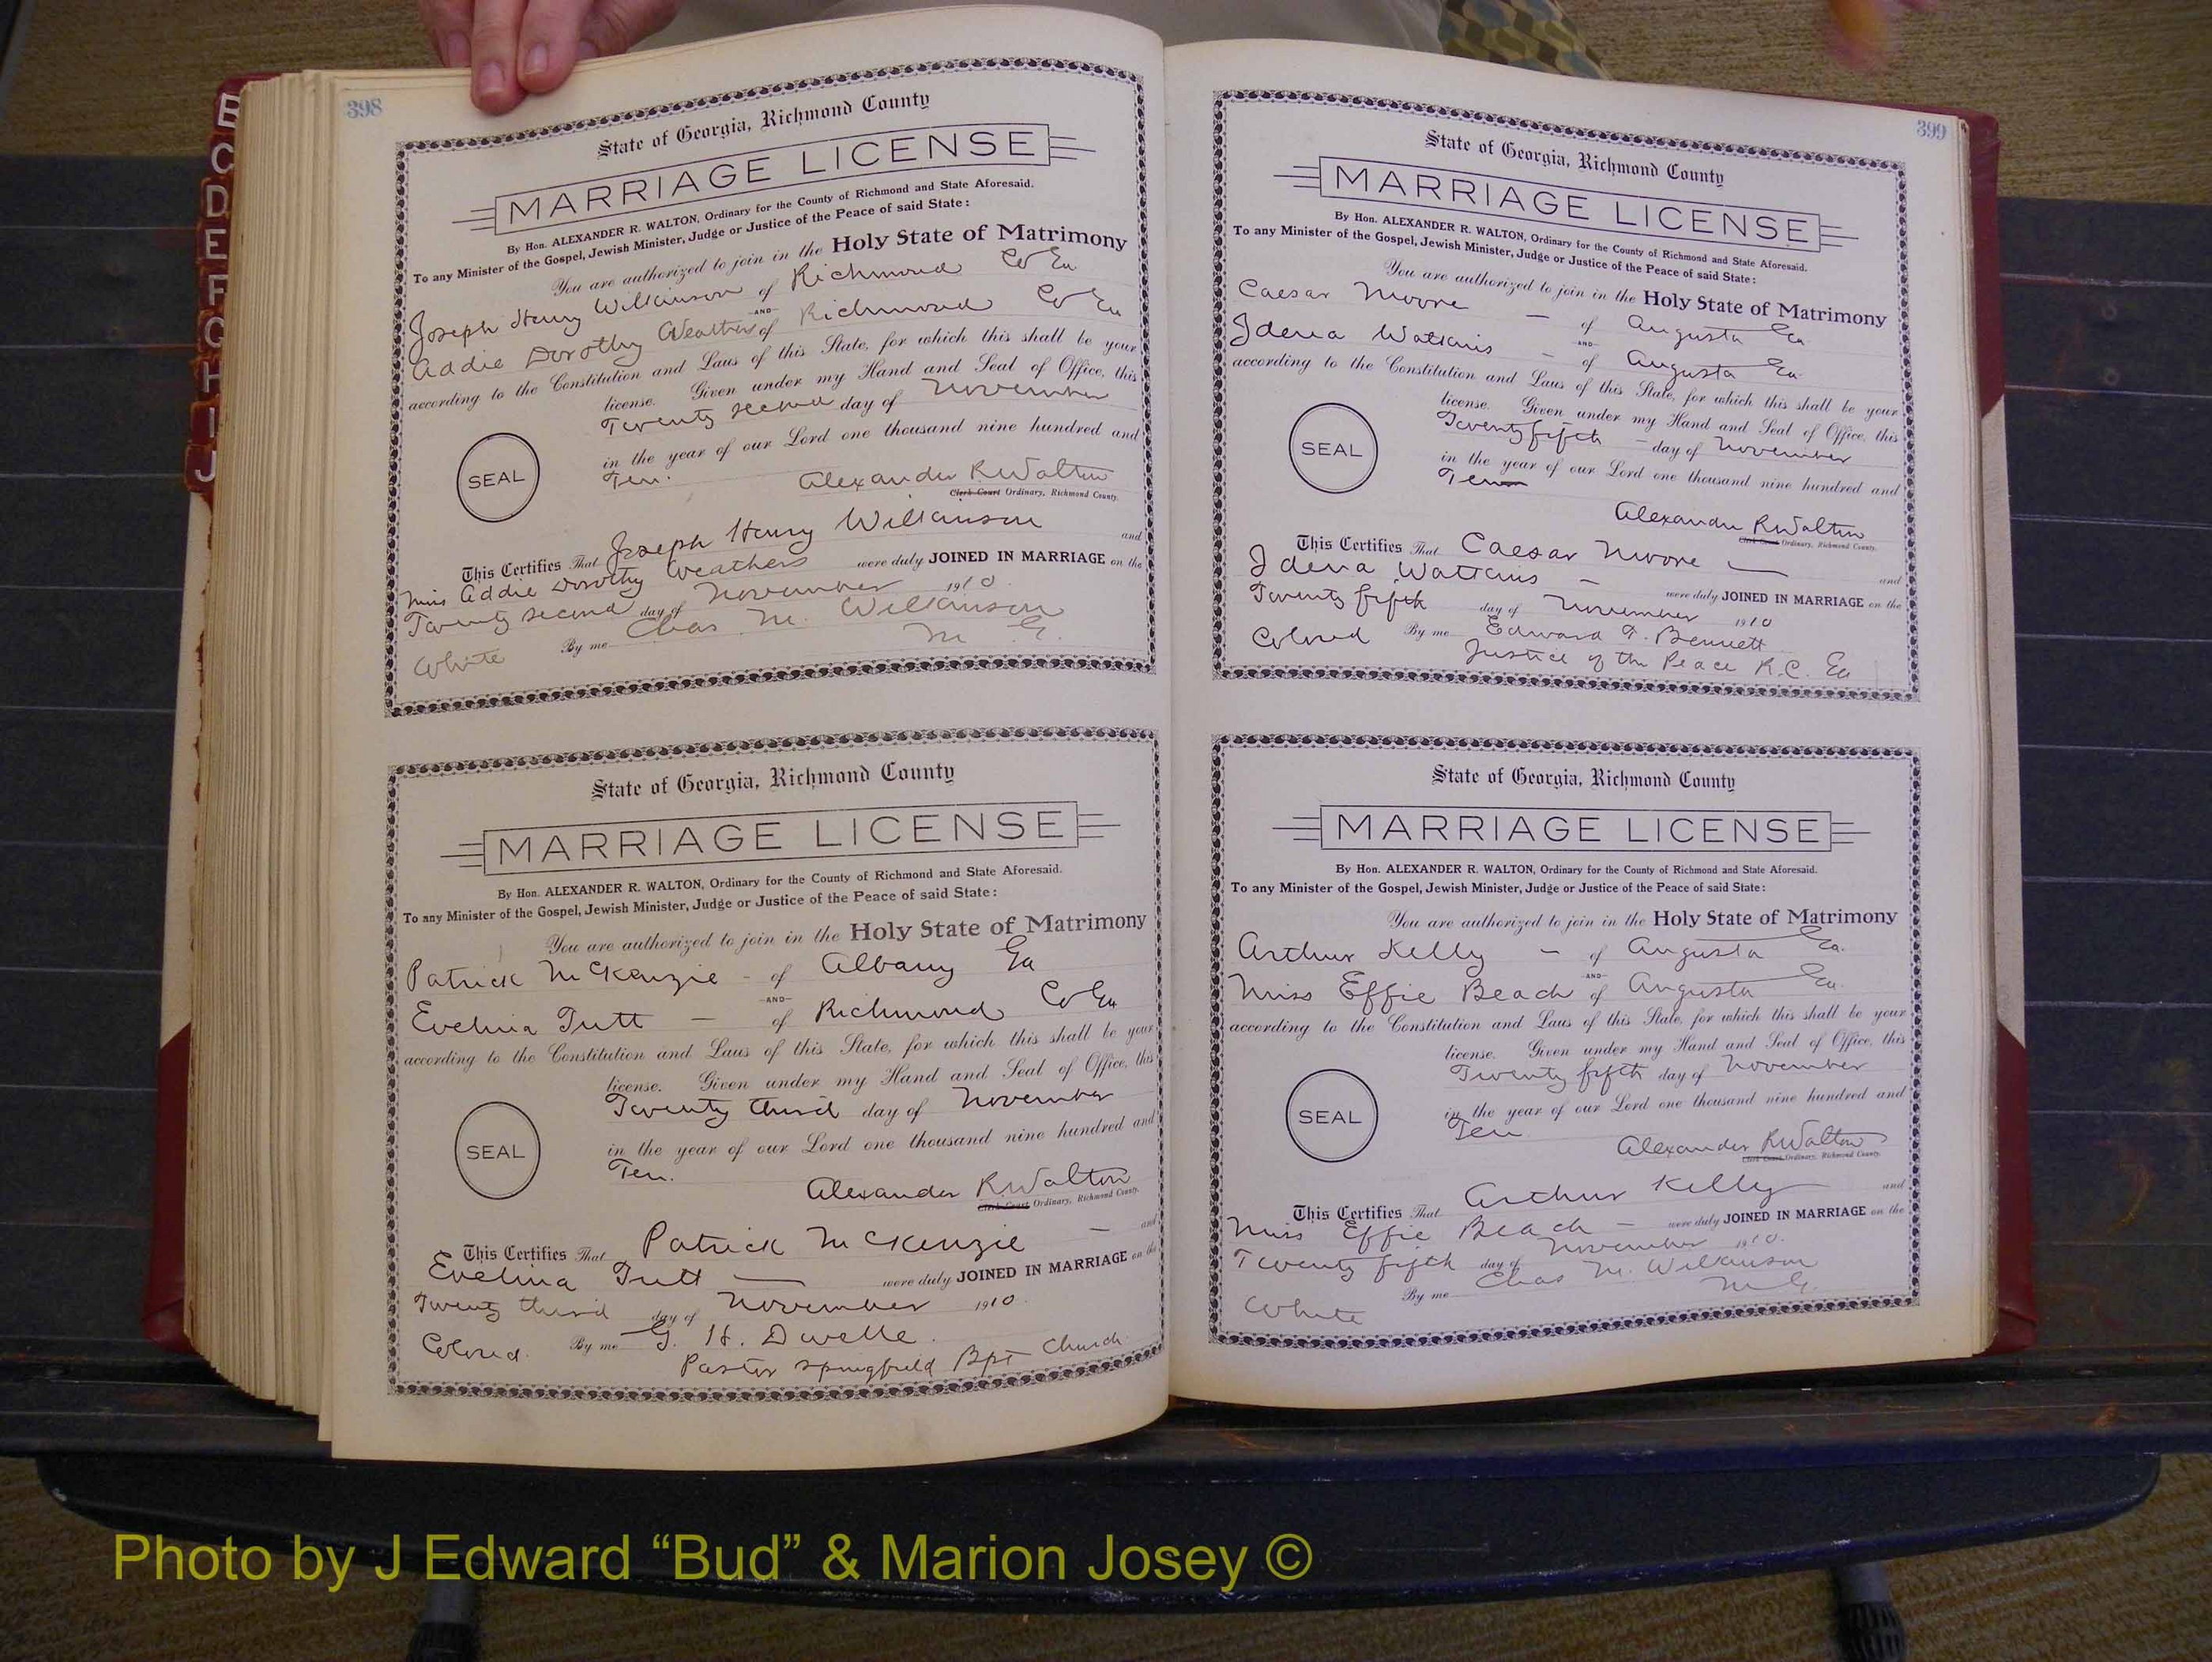 B
C
D
E
F
G
H
I
J
398
State of Georgia, Richmond County
MARRIAGE LICENSE
By Hon. ALEXANDER R. WALTON, Ordinary for the County of Richmond and State Aforesaid.
To any Minister of the Gospel, Jewish Minister, Judge or Justice of the Peace of said State:
You are authorized to join in the Holy State of Matrimony
Joseph Henry Wilkinson of Richmond Co Ga
—AND—
Addie Dorothy Weathers of Richmond Co Ga
according to the Constitution and Laws of this State, for which this shall be your
license. Given under my Hand and Seal of Office, this
Twenty second day of November
in the year of our Lord one thousand nine hundred and
SEAL
Ten. Alexander R Walton
Clerk Court Ordinary, Richmond County.
This Certifies That Joseph Henry Wilkinson and
Miss Addie Dorothy Weathers were duly JOINED IN MARRIAGE on the
Twenty second day of November 1910.
By me Chas. M. Wilkinson
White M. G.
State of Georgia, Richmond County
MARRIAGE LICENSE
By Hon. ALEXANDER R. WALTON, Ordinary for the County of Richmond and State Aforesaid.
To any Minister of the Gospel, Jewish Minister, Judge or Justice of the Peace of said State:
You are authorized to join in the Holy State of Matrimony
Patrick McKenzie - of Albany Ga
—AND—
Evelina Tutt — of Richmond Co Ga
according to the Constitution and Laws of this State, for which this shall be your
license. Given under my Hand and Seal of Office, this
Twenty third day of November
in the year of our Lord one thousand nine hundred and
SEAL
Ten. Alexander R Walton
Clerk Court Ordinary, Richmond County.
This Certifies That Patrick McKenzie — and
Evelina Tutt — were duly JOINED IN MARRIAGE on the
Twenty third day of November 1910.
Colored. By me G. H. Dwelle.
Pastor Springfield Bpt Church
399
State of Georgia, Richmond County
MARRIAGE LICENSE
By Hon. ALEXANDER R. WALTON, Ordinary for the County of Richmond and State Aforesaid.
To any Minister of the Gospel, Jewish Minister, Judge or Justice of the Peace of said State:
You are authorized to join in the Holy State of Matrimony
Caesar Moore — of Augusta Ga
—AND—
Idena Watkins — of Augusta Ga
according to the Constitution and Laws of this State, for which this shall be your
license. Given under my Hand and Seal of Office, this
Twenty fifth — day of November
in the year of our Lord one thousand nine hundred and
SEAL
Ten
Alexander R Walton
Clerk Court Ordinary, Richmond County.
This Certifies That Caesar Moore — and
Idena Watkins — were duly JOINED IN MARRIAGE on the
Twenty fifth day of November 1910
Colored By me Edward T. Bennett
Justice of the Peace R.C. Ga
State of Georgia, Richmond County
MARRIAGE LICENSE
By Hon. ALEXANDER R. WALTON, Ordinary for the County of Richmond and State Aforesaid.
To any Minister of the Gospel, Jewish Minister, Judge or Justice of the Peace of said State:
You are authorized to join in the Holy State of Matrimony
Arthur Kelly — of Augusta Ga.
—AND—
Miss Effie Beach of Augusta Ga.
according to the Constitution and Laws of this State, for which this shall be your
license. Given under my Hand and Seal of Office, this
Twenty fifth day of November
in the year of our Lord one thousand nine hundred and
SEAL
Ten Alexander R Walton
Clerk Court Ordinary, Richmond County.
This Certifies That Arthur Kelly and
Miss Effie Beach — were duly JOINED IN MARRIAGE on the
Twenty fifth day of November 1910.
By me Chas M. Wilkinson
White M. G.
Photo by J Edward “Bud” & Marion Josey ©